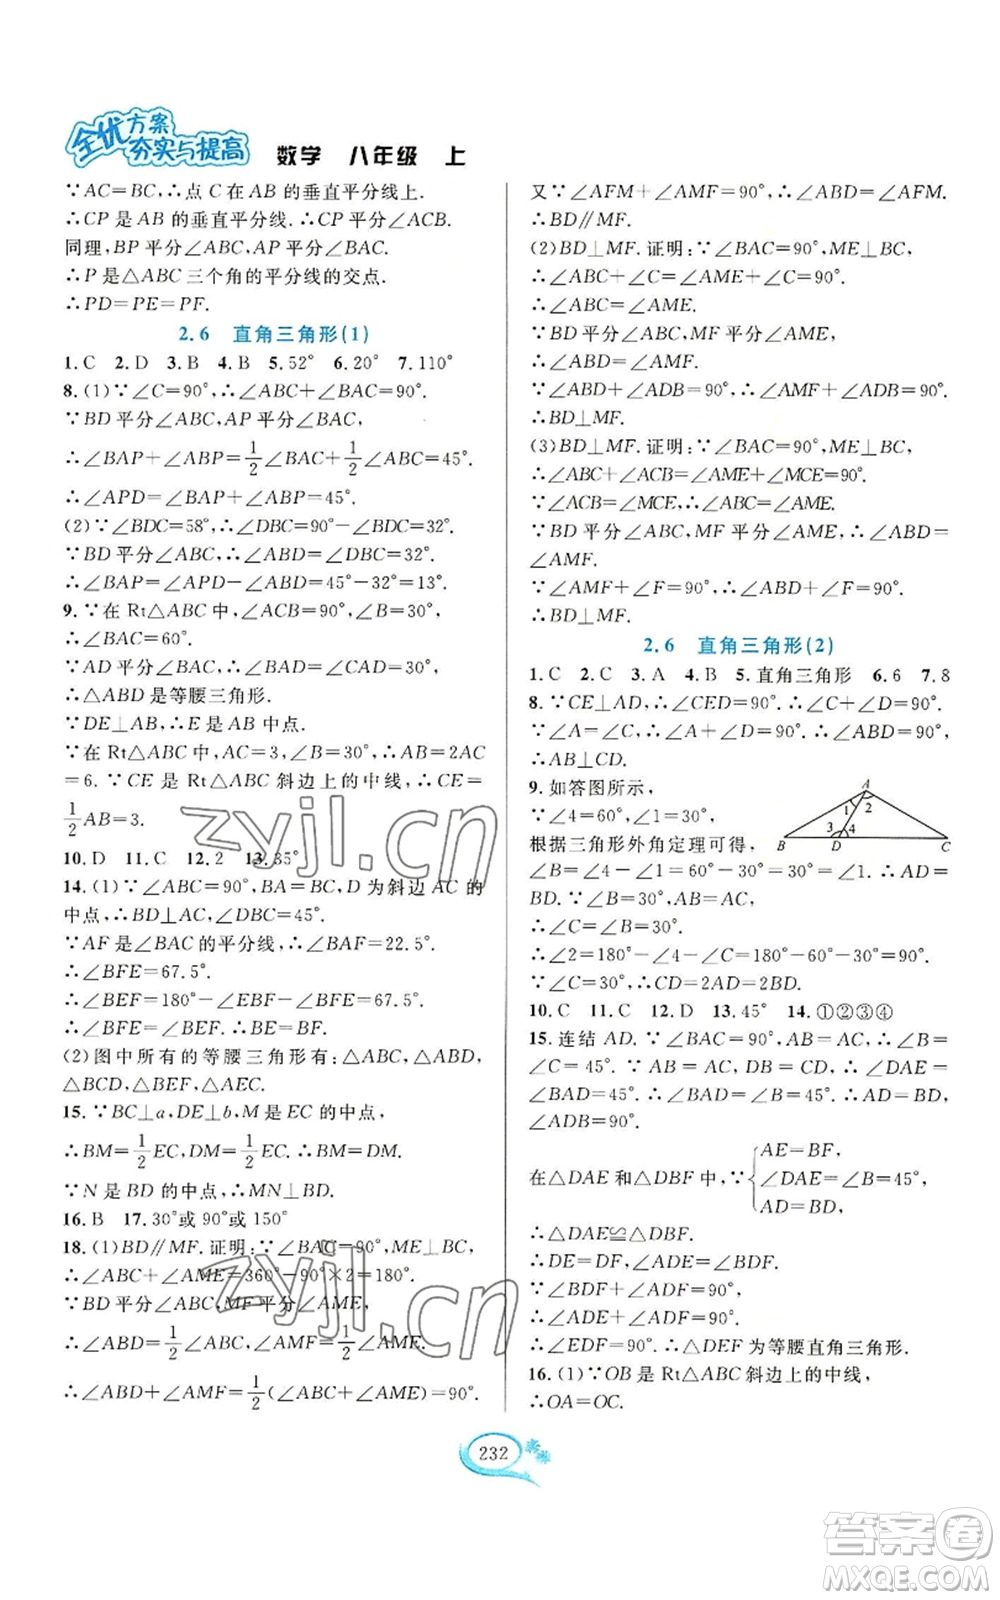 全优方案
夯实与提高 数学 八年级 上
∵AC=BC,∴点 C 在 AB 的垂直平分线上.
∴CP 是 AB 的垂直平分线.∴CP 平分∠ACB.
同理,BP 平分∠ABC,AP 平分∠BAC.
∴P 是△ABC 三个角的平分线的交点.
∴PD=PE=PF.
2.6 直角三角形(1)
1.C 2.D 3.B 4.B 5.52° 6.20° 7.110°
8.(1)∵∠C=90°,∴∠ABC+∠BAC=90°.
∵BD 平分∠ABC,AP 平分∠BAC,
∴∠BAP+∠ABP=1/2∠BAC+1/2∠ABC=45°.
∴∠APD=∠BAP+∠ABP=45°.
(2)∵∠BDC=58°,∴∠DBC=90°-∠BDC=32°.
∵BD 平分∠ABC,∴∠ABD=∠DBC=32°.
∴∠BAP=∠APD-∠ABD=45°-32°=13°.
9.∵在 Rt△ABC 中,∠ACB=90°,∠B=30°,
∴∠BAC=60°.
∵AD 平分∠BAC,∴∠BAD=∠CAD=30°.
∴△ABD 是等腰三角形.
∵DE⊥AB,∴E 是 AB 中点.
∵在 Rt△ABC 中,AC=3,∠B=30°,∴AB=2AC
=6.∵CE 是 Rt△ABC 斜边上的中线,∴CE=
1/2AB=3.
10.D 11.C 12.2 13.35°
14.(1)∵∠ABC=90°,BA=BC,D 为斜边 AC 的
中点,∴BD⊥AC,∠DBC=45°.
∵AF 是∠BAC 的平分线,∴∠BAF=22.5°.
∴∠BFE=67.5°.
∴∠BEF=180°-∠EBF-∠BFE=67.5°.
∴∠BFE=∠BEF.∴BE=BF.
(2)图中所有的等腰三角形有:△ABC,△ABD,
△BCD,△BEF,△AEC.
15.∵BC⊥a,DE⊥b,M 是 EC 的中点,
∴BM=1/2EC,DM=1/2EC.∴BM=DM.
∵N 是 BD 的中点,∴MN⊥BD.
16.B 17.30°或 90°或 150°
18.(1)BD∥MF.证明:∵∠BAC=90°,ME⊥BC,
∴∠ABC+∠AME=360°-90°×2=180°.
∵BD 平分∠ABC,MF 平分∠AME,
∴∠ABD=1/2∠ABC,∠AMF=1/2∠AME.
∴∠ABD+∠AMF=1/2(∠ABC+∠AME)=90°.
又∵∠AFM+∠AMF=90°,∴∠ABD=∠AFM.
∴BD∥MF.
(2)BD⊥MF.证明:∵∠BAC=90°,ME⊥BC,
∴∠ABC+∠C=∠AME+∠C=90°.
∴∠ABC=∠AME.
∵BD 平分∠ABC,MF 平分∠AME,
∴∠ABD=∠AMF.
∵∠ABD+∠ADB=90°,∴∠AMF+∠ADB=90°.
∴BD⊥MF.
(3)BD⊥MF.证明:∵∠BAC=90°,ME⊥BC,
∴∠ABC+∠ACB=∠AME+∠MCE=90°.
∵∠ACB=∠MCE,∴∠ABC=∠AME.
∵BD 平分∠ABC,MF 平分∠AME,∴∠ABD=
∠AMF.
∵∠AMF+∠F=90°,∴∠ABD+∠F=90°.
∴BD⊥MF.
2.6 直角三角形(2)
1.C 2.C 3.A 4.B 5.直角三角形 6.6 7.8
8.∵CE⊥AD,∴∠CED=90°.∴∠C+∠D=90°.
∵∠A=∠C,∴∠A+∠D=90°.
∴AB⊥CD.
9.如答图所示,
∵∠4=60°,∠1=30°,
根据三角形外角定理可得,
∠B=∠4-∠1=60°-30°=30°=∠1.∴AD=
BD.∵∠C=∠B,
∴∠C=∠B=30°.
∴∠2=180°-∠4-∠C=180°-60°-30°=90°.
∵∠C=30°,∴CD=2AD=2BD.
A
1
2
3
4
B
D
C
10.C 11.C 12.D 13.45° 14.①②③④
15.连结 AD.∵∠BAC=90°,BA=AC,∴∠B=
∠C=45°.∵BA=AC,DB=CD,∴∠DAE=
∠BAD=45°.∴∠B=∠BAD=45°.∴AD=BD,
∠ADB=90°.
在△DAE 和△DBF 中,∵{AE=BF,
∠DAE=∠B=45°,
AD=BD,
∴△DAE≌△DBF.
∴DE=DF,∠ADE=∠BDF.
∵∠BDF+∠ADF=90°,
∴∠ADE+∠ADF=90°.
∴∠EDF=90°.∴△DEF 为等腰直角三角形.
16.(1)∵OB 是 Rt△ABC 斜边上的中线,
∴OA=OC.
232
zyjl.cn
zyjl.cn
答案圈
MXQE.COM